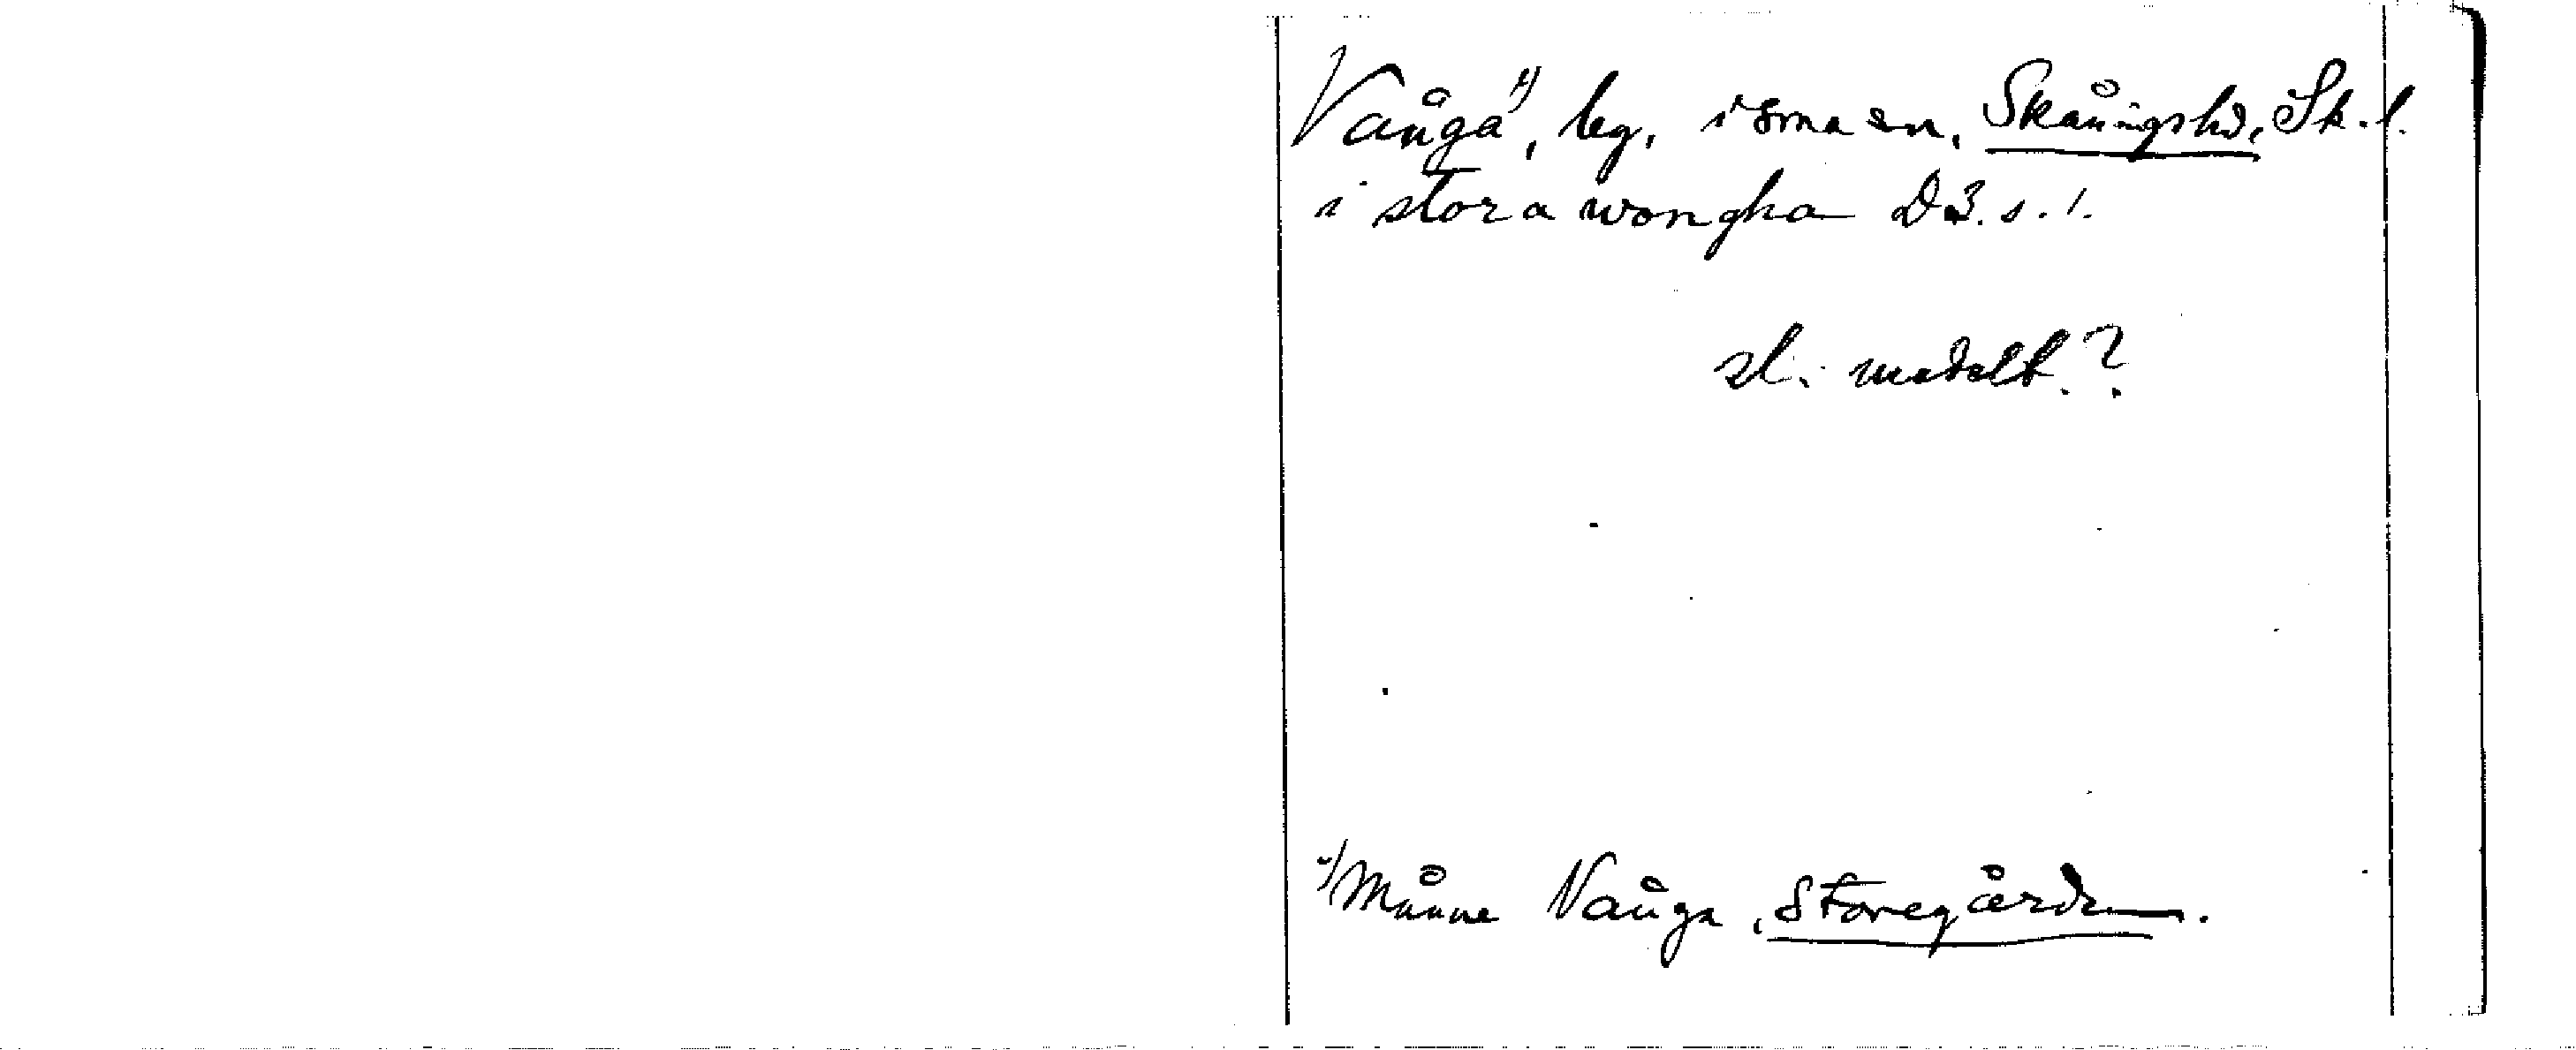 Vånga¹⁾, by, i sma sn, Skånings hd, Sk. l.
i stora wongha D3. s. 1.
st. medelt.?
¹⁾ Månne Vånga, Storegården.